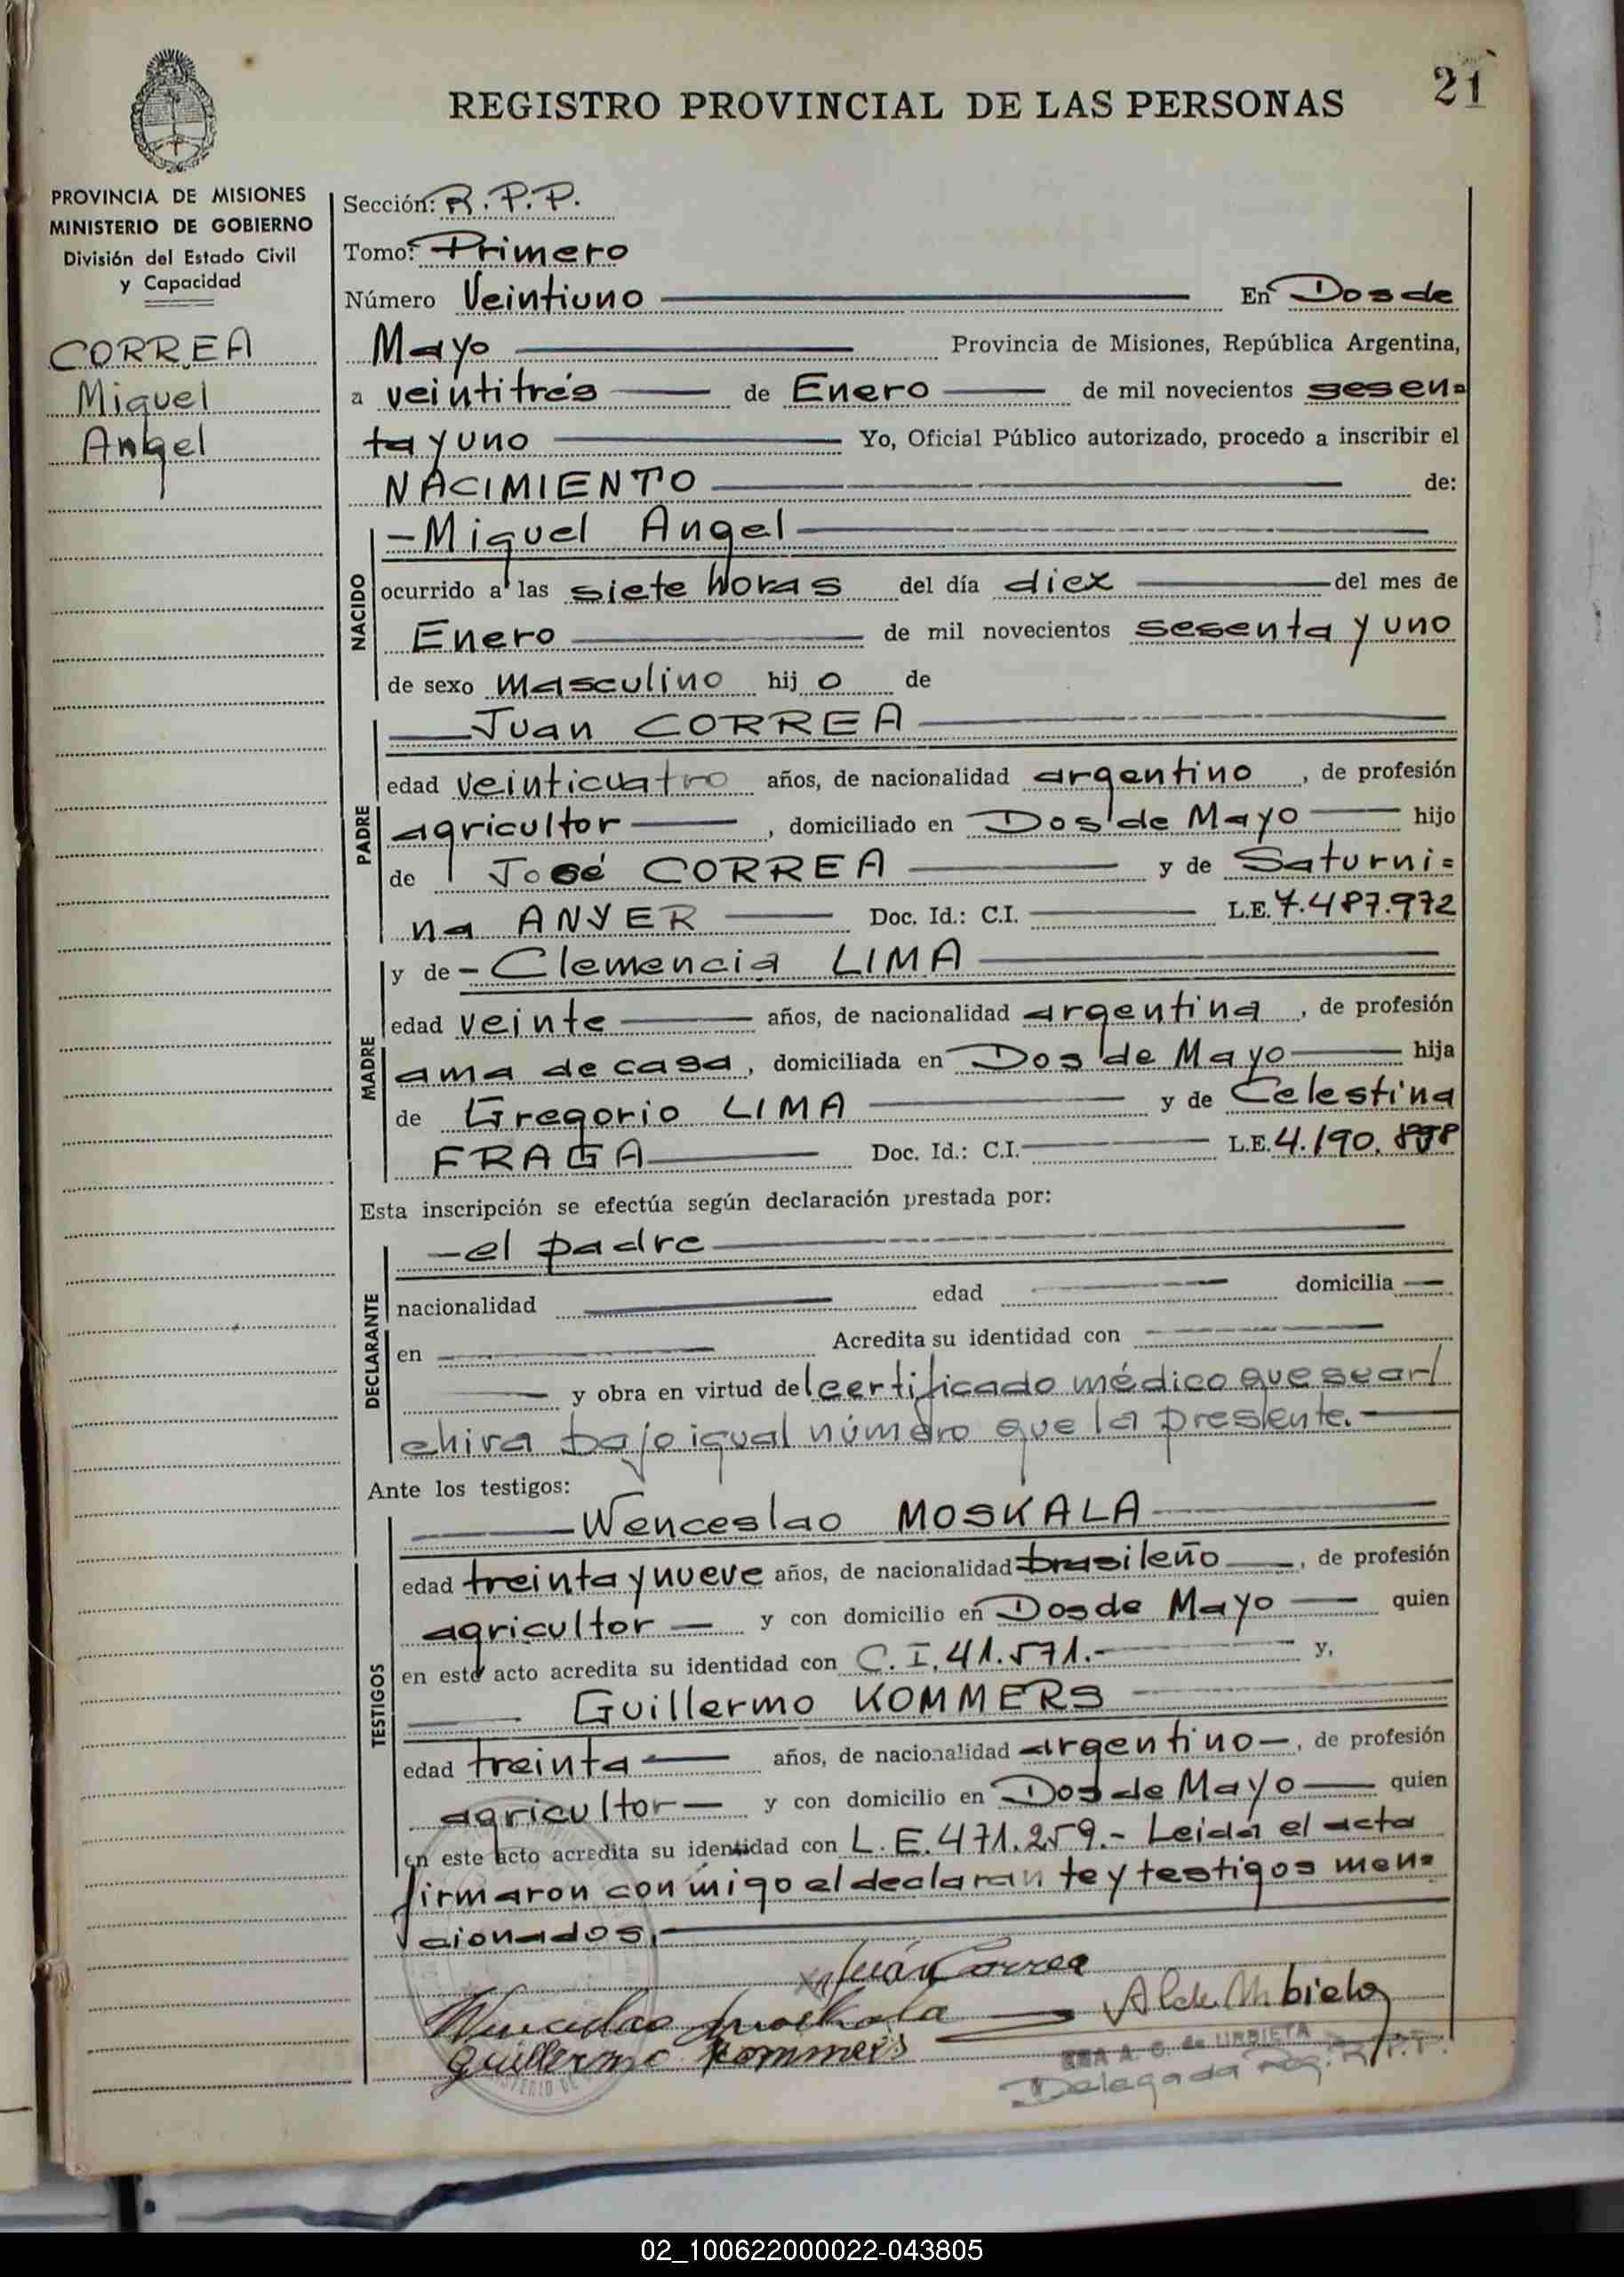 21
REGISTRO PROVINCIAL DE LAS PERSONAS
PROVINCIA DE MISIONES
MINISTERIO DE GOBIERNO
División del Estado Civil
y Capacidad
CORREA
Miguel
Angel
Sección: R.P.P.
Tomo: Primero
Número Veintiuno En Dos de
Mayo Provincia de Misiones, República Argentina,
a veintitrés de Enero de mil novecientos sesen=
ta y uno Yo, Oficial Público autorizado, procedo a inscribir el
NACIMIENTO de:
NACIDO
-Miguel Angel
ocurrido a las siete horas del día diez del mes de
Enero de mil novecientos sesenta y uno
de sexo masculino hijo de
PADRE
Juan CORREA
edad veinticuatro años, de nacionalidad argentino, de profesión
agricultor, domiciliado en Dos de Mayo hijo
de José CORREA y de Saturni=
na ANYER Doc. Id.: C.I. L.E. 7.487.972
MADRE
y de - Clemencia LIMA
edad veinte años, de nacionalidad argentina, de profesión
ama de casa, domiciliada en Dos de Mayo hija
de Gregorio LIMA y de Celestina
FRAGA Doc. Id.: C.I. L.E. 4.190.
Esta inscripción se efectúa según declaración prestada por:
DECLARANTE
-el padre
nacionalidad edad domicilia
en Acredita su identidad con
y obra en virtud del certificado médico que se ar/
chiva bajo igual número que la presente.
Ante los testigos:
TESTIGOS
Wenceslao MOSKALA
edad treinta y nueve años, de nacionalidad brasileño, de profesión
agricultor y con domicilio en Dos de Mayo quien
en este acto acredita su identidad con C.I. 41.571.- y,
Guillermo KOMMERS
edad treinta años, de nacionalidad argentino, de profesión
agricultor y con domicilio en Dos de Mayo quien
en este acto acredita su identidad con L.E. 471.259.- Leida el acta
firmaron conmigo el declarante y testigos men=
cionados.
Juán Correa
Wenceslao Moskala
Guillermo Kommers
A. C. de URBIETA
Delegada R.P.P.
02_100622000022-043805